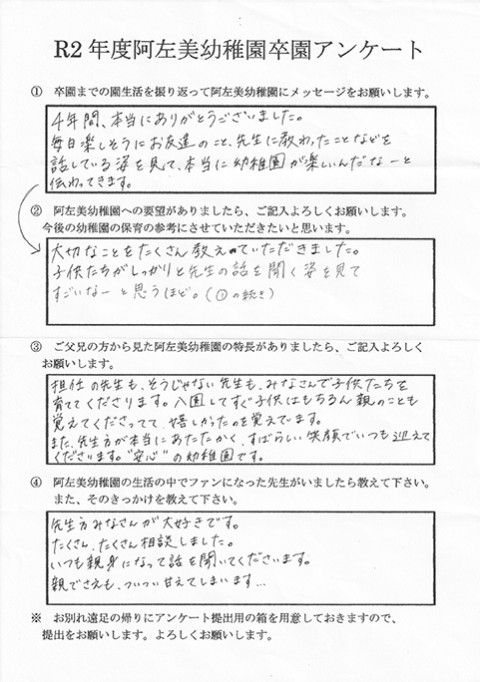 R2年度阿左美幼稚園卒園アンケート
① 卒園までの園生活を振り返って阿左美幼稚園にメッセージをお願いします。
4年間、本当にありがとうございました。
毎日楽しそうにお友達のこと、先生に教わったことなどを
話している姿を見て、本当に幼稚園が楽しいんだなーと
伝わってきます。
② 阿左美幼稚園への要望がありましたら、ご記入よろしくお願いします。
今後の幼稚園の保育の参考にさせていただきたいと思います。
大切なことをたくさん教えていただきました。
子供たちがしっかりと先生の話を聞く姿を見て
すごいなーと思うほど。(①の続き)
③ ご父兄の方から見た阿左美幼稚園の特長がありましたら、ご記入よろしく
お願いします。
担任の先生も、そうじゃない先生も、みなさんで子供たちを
育ててくださります。入園してすぐ子供はもちろん親のことも
覚えてくださってて、嬉しかったのを覚えています。
また、先生方が本当にあたたかく、すばらしい笑顔でいつも迎えて
くださいます。"安心"の幼稚園です。
④ 阿左美幼稚園の生活の中でファンになった先生がいましたら教えて下さい。
また、そのきっかけを教えて下さい。
先生方みなさんが大好きです。
たくさん、たくさん相談しました。
いつも親身になって話を聞いてくださいます。
親でさえも、ついつい甘えてしまいます…
※ お別れ遠足の帰りにアンケート提出用の箱を用意しておきますので、
提出をお願いします。よろしくお願いします。